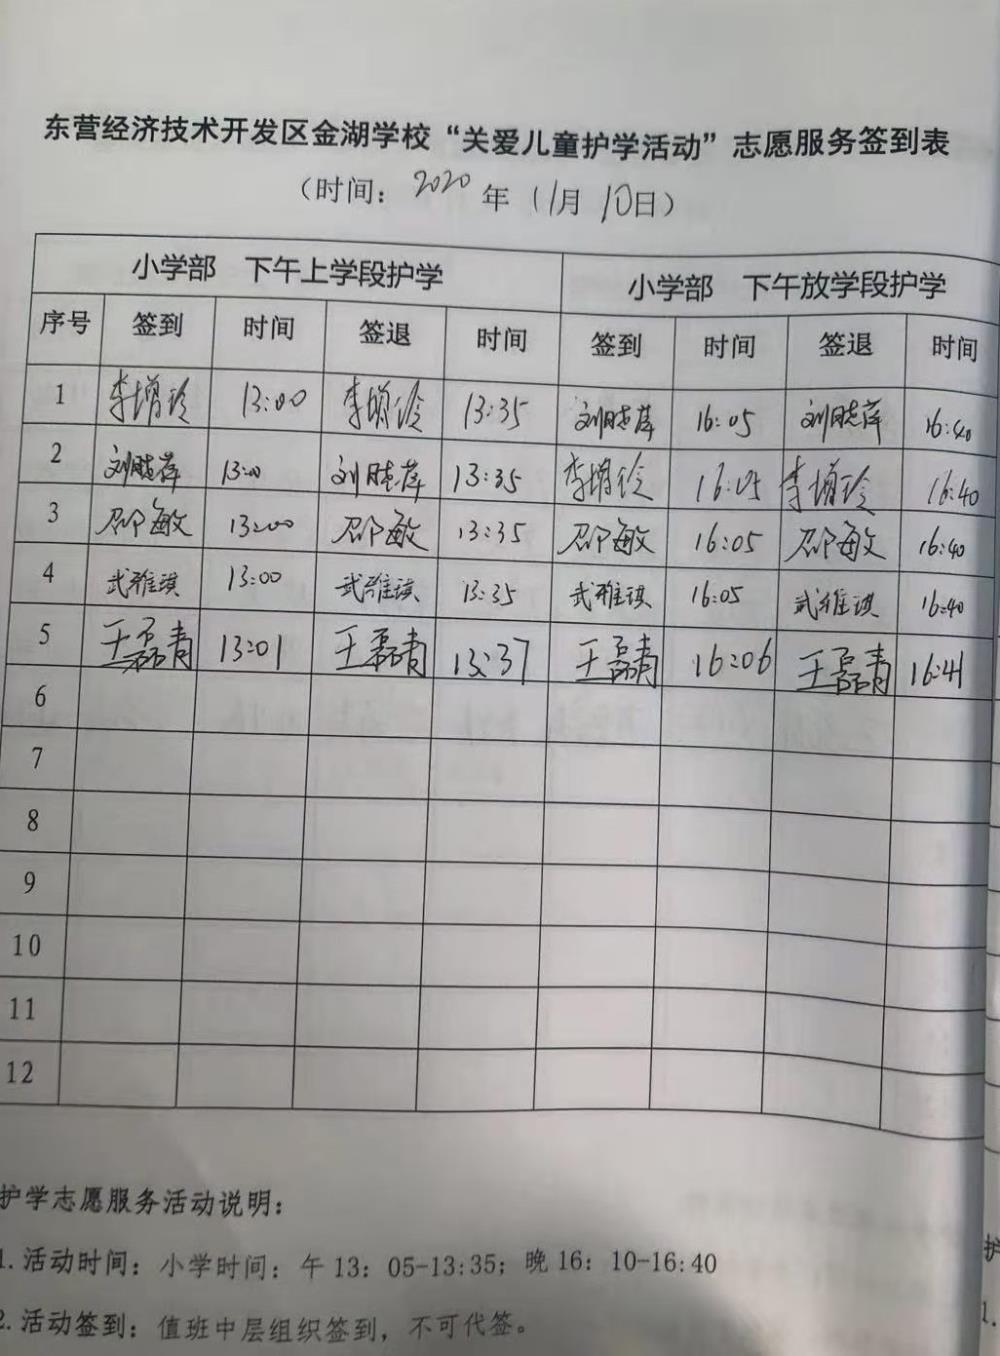 东营经济技术开发区金湖学校“关爱儿童护学活动”志愿服务签到表
（时间：2020年11月10日）
小学部 下午上学段护学 小学部 下午放学段护学
序号 签到 时间 签退 时间 签到 时间 签退 时间
1 李增玲 13:00 李增玲 13:35 刘晓萍 16:05 刘晓萍 16:40
2 刘晓萍 13:00 刘晓萍 13:35 李增玲 16:05 李增玲 16:40
3 邵敏 13:00 邵敏 13:35 邵敏 16:05 邵敏 16:40
4 武雅琪 13:00 武雅琪 13:35 武雅琪 16:05 武雅琪 16:40
5 王磊青 13:01 王磊青 13:37 王磊青 16:06 王磊青 16:41
6
7
8
9
10
11
12
护学志愿服务活动说明：
1.活动时间：小学时间：午13：05-13:35；晚16：10-16:40
2.活动签到：值班中层组织签到，不可代签。
护
1.